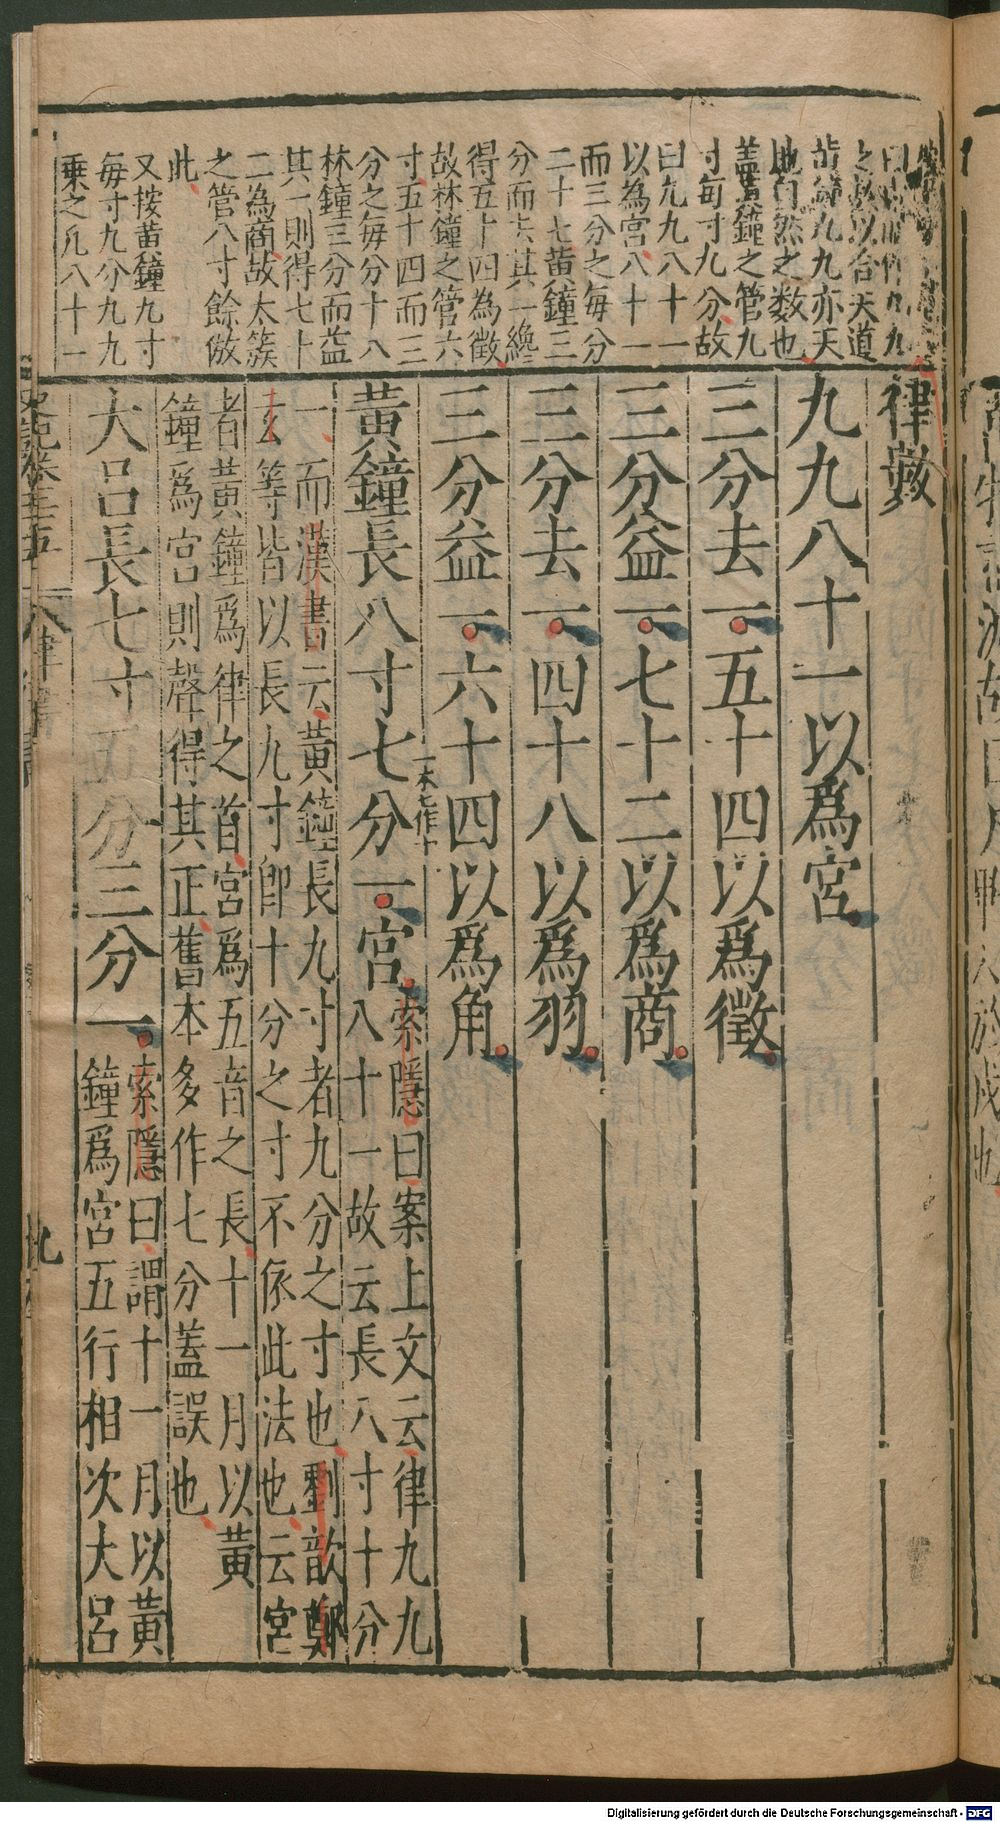 曰
之數以合天道
黃鐘九九亦天
地自然之数也
蓋黃鐘之管九
寸每寸九分故
曰九九八十一
以為宮八十一
而三分之每分
二十七黃鐘三
分而去其一纔
得五十四為徵
故林鐘之管六
寸五十四而三
分之每分十八
林鐘三分而益
其一則得七十
二為商故太簇
之管八寸餘倣
此
又按黃鐘九寸
每寸九分九九
乗之凡八十一
律數
九九八十一以爲宮
三分去一五十四以爲徵
三分益一七十二以爲商
三分去一四十八以爲羽
三分益一六十四以爲角
黃鐘長八寸七分一宮
一本七作十
索隱曰案上文云律九九
八十一故云長八寸十分
一而漢書云黃鐘長九寸者九分之寸也劉歆鄭
玄等皆以長九寸卽十分之寸不依此法也云宮
者黃鐘爲律之首宮爲五音之長十一月以黃
鐘爲宮則聲得其正舊本多作七分蓋誤也
大呂長七寸五分三分一
索隱曰謂十一月以黃
鐘爲宮五行相次大呂
史記卷二十五
律書
九
Digitalisierung gefördert durch die Deutsche Forschungsgemeinschaft - DFG